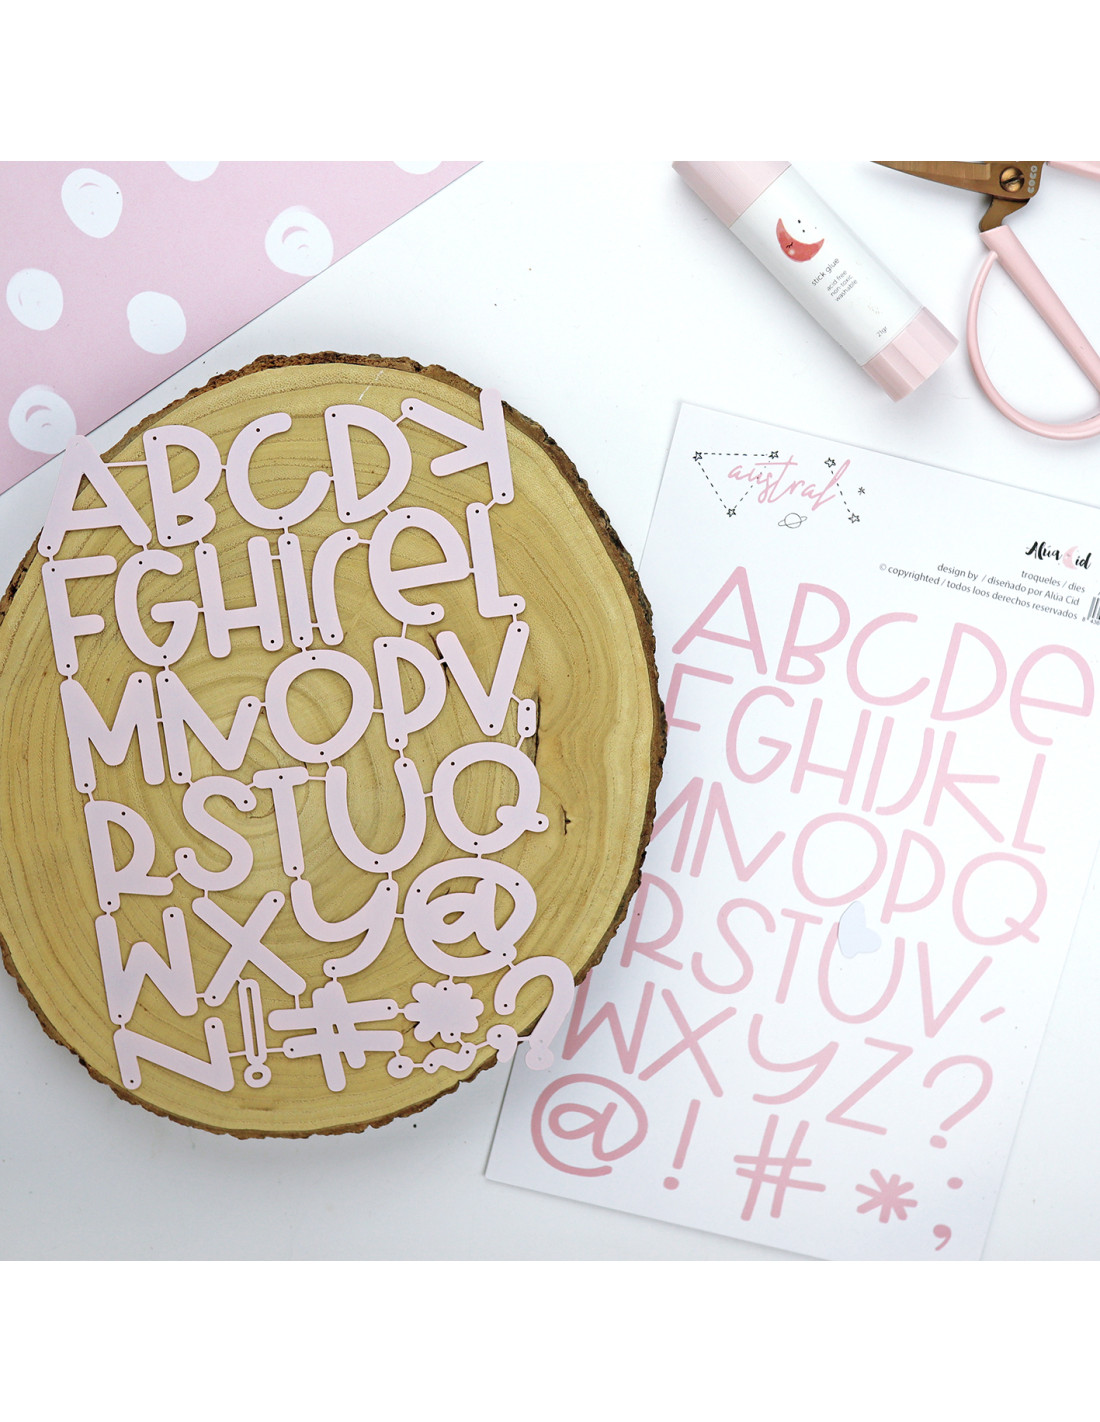 ABCDK
FGHIJeL
MNOPV
RSTUQ
WXY@
Z!#*?
stick glue
acid free
non toxic
washable
21gr
COCO
austral
Alúa Cid
troqueles / dies
design by / diseñado por Alúa Cid
© copyrighted / todos loos derechos reservados
ABCDe
FGHIJKL
MNOPQ
RSTUV´
WXYZ?
@!#*;